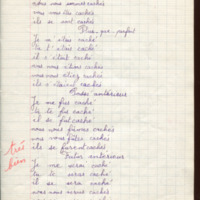 nous nous sommes cachés
vous vous êtes cachés
ils se sont cachés
Plus-que-parfait
Je m'étais caché
Tu t'étais caché
il s'était caché
nous nous étions cachés
vous vous étiez cachés
ils s'étaient cachés
Passé antérieur
Je me fus caché
tu te fus caché
il se fut caché
nous nous fûmes cachés
vous vous fûtes cachés
ils se furent cachés
très
bien
Futur antérieur
Je me serai caché
tu te seras caché
il se sera caché
nous nous serons cachés